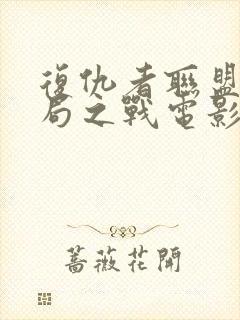 復仇者聯盟
局之戰電影
薔薇花開